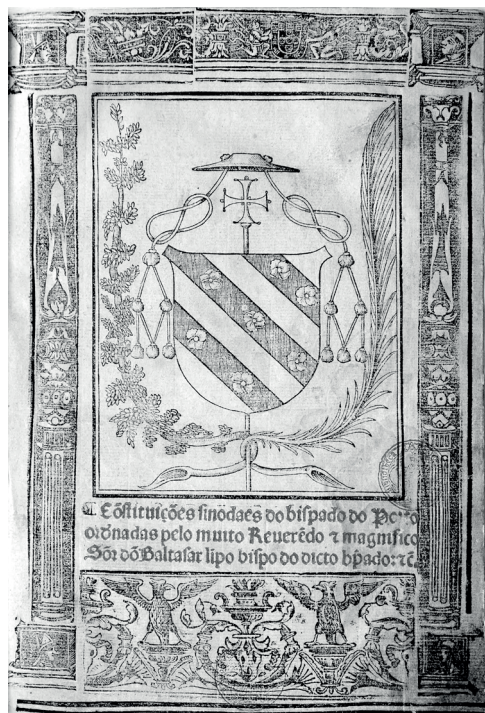 ¶ Cõstituições sinodaes do bispado do
ordenadas pelo muito Reuerẽdo ⁊ magnifico
Sõr dõ Baltasar lipo bispo do dicto bp̃ado: ⁊c̃.